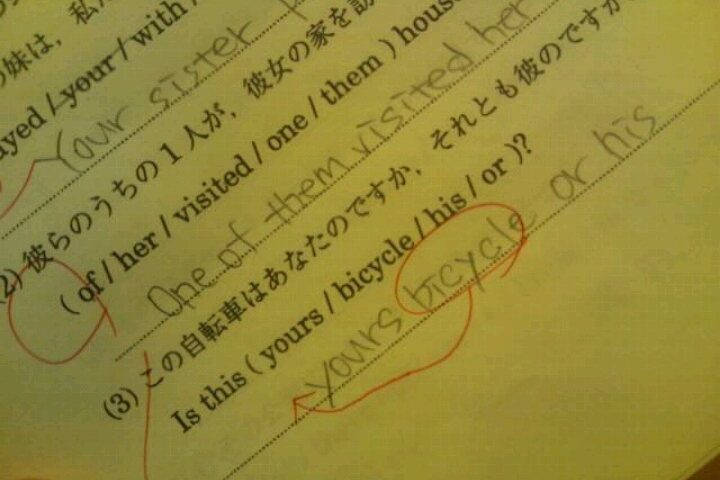 の妹は，私
ayed / your / with /
Your sister
(2) 彼らのうちの1人が，彼女の家を訪
( of / her / visited / one / them ) hous
One of them visited her
(3) この自転車はあなたのですか，それとも彼のですか
Is this ( yours / bicycle / his / or )?
yours bicycle or his